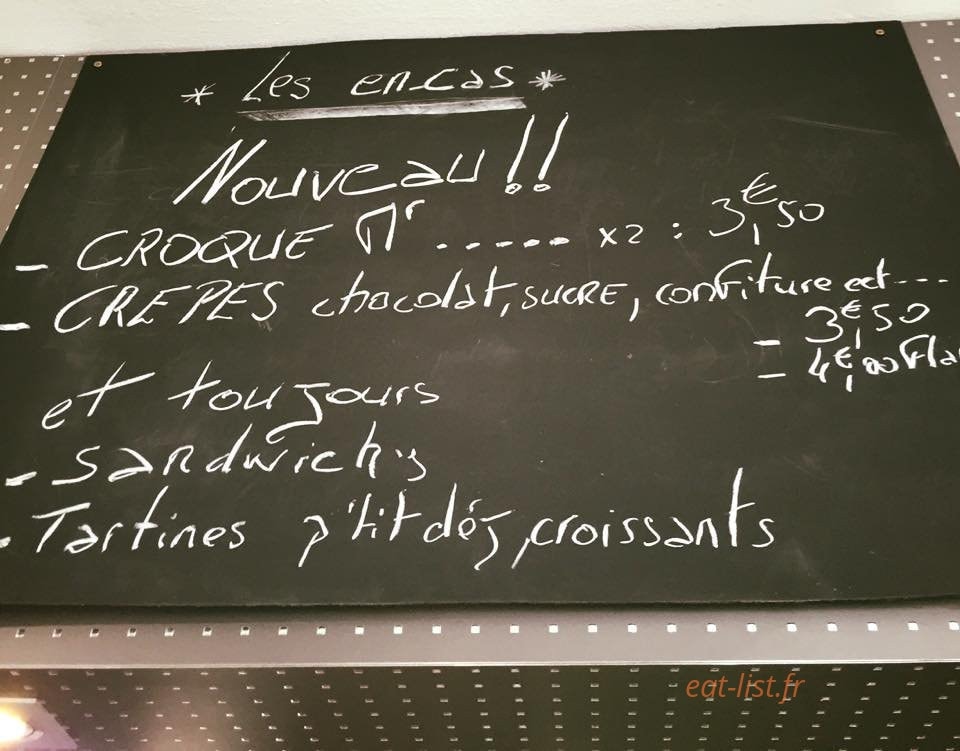 * Les en-cas *
Nouveau !!
- CROQUE Mr ...... x2 : 3,€50
- CREPES chocolat, SUCRE, confiture ect....
- 3,€50
- 4,€00
et toujours
- Sandwichs
- Tartines p'tit déj, croissants
eat-list.fr